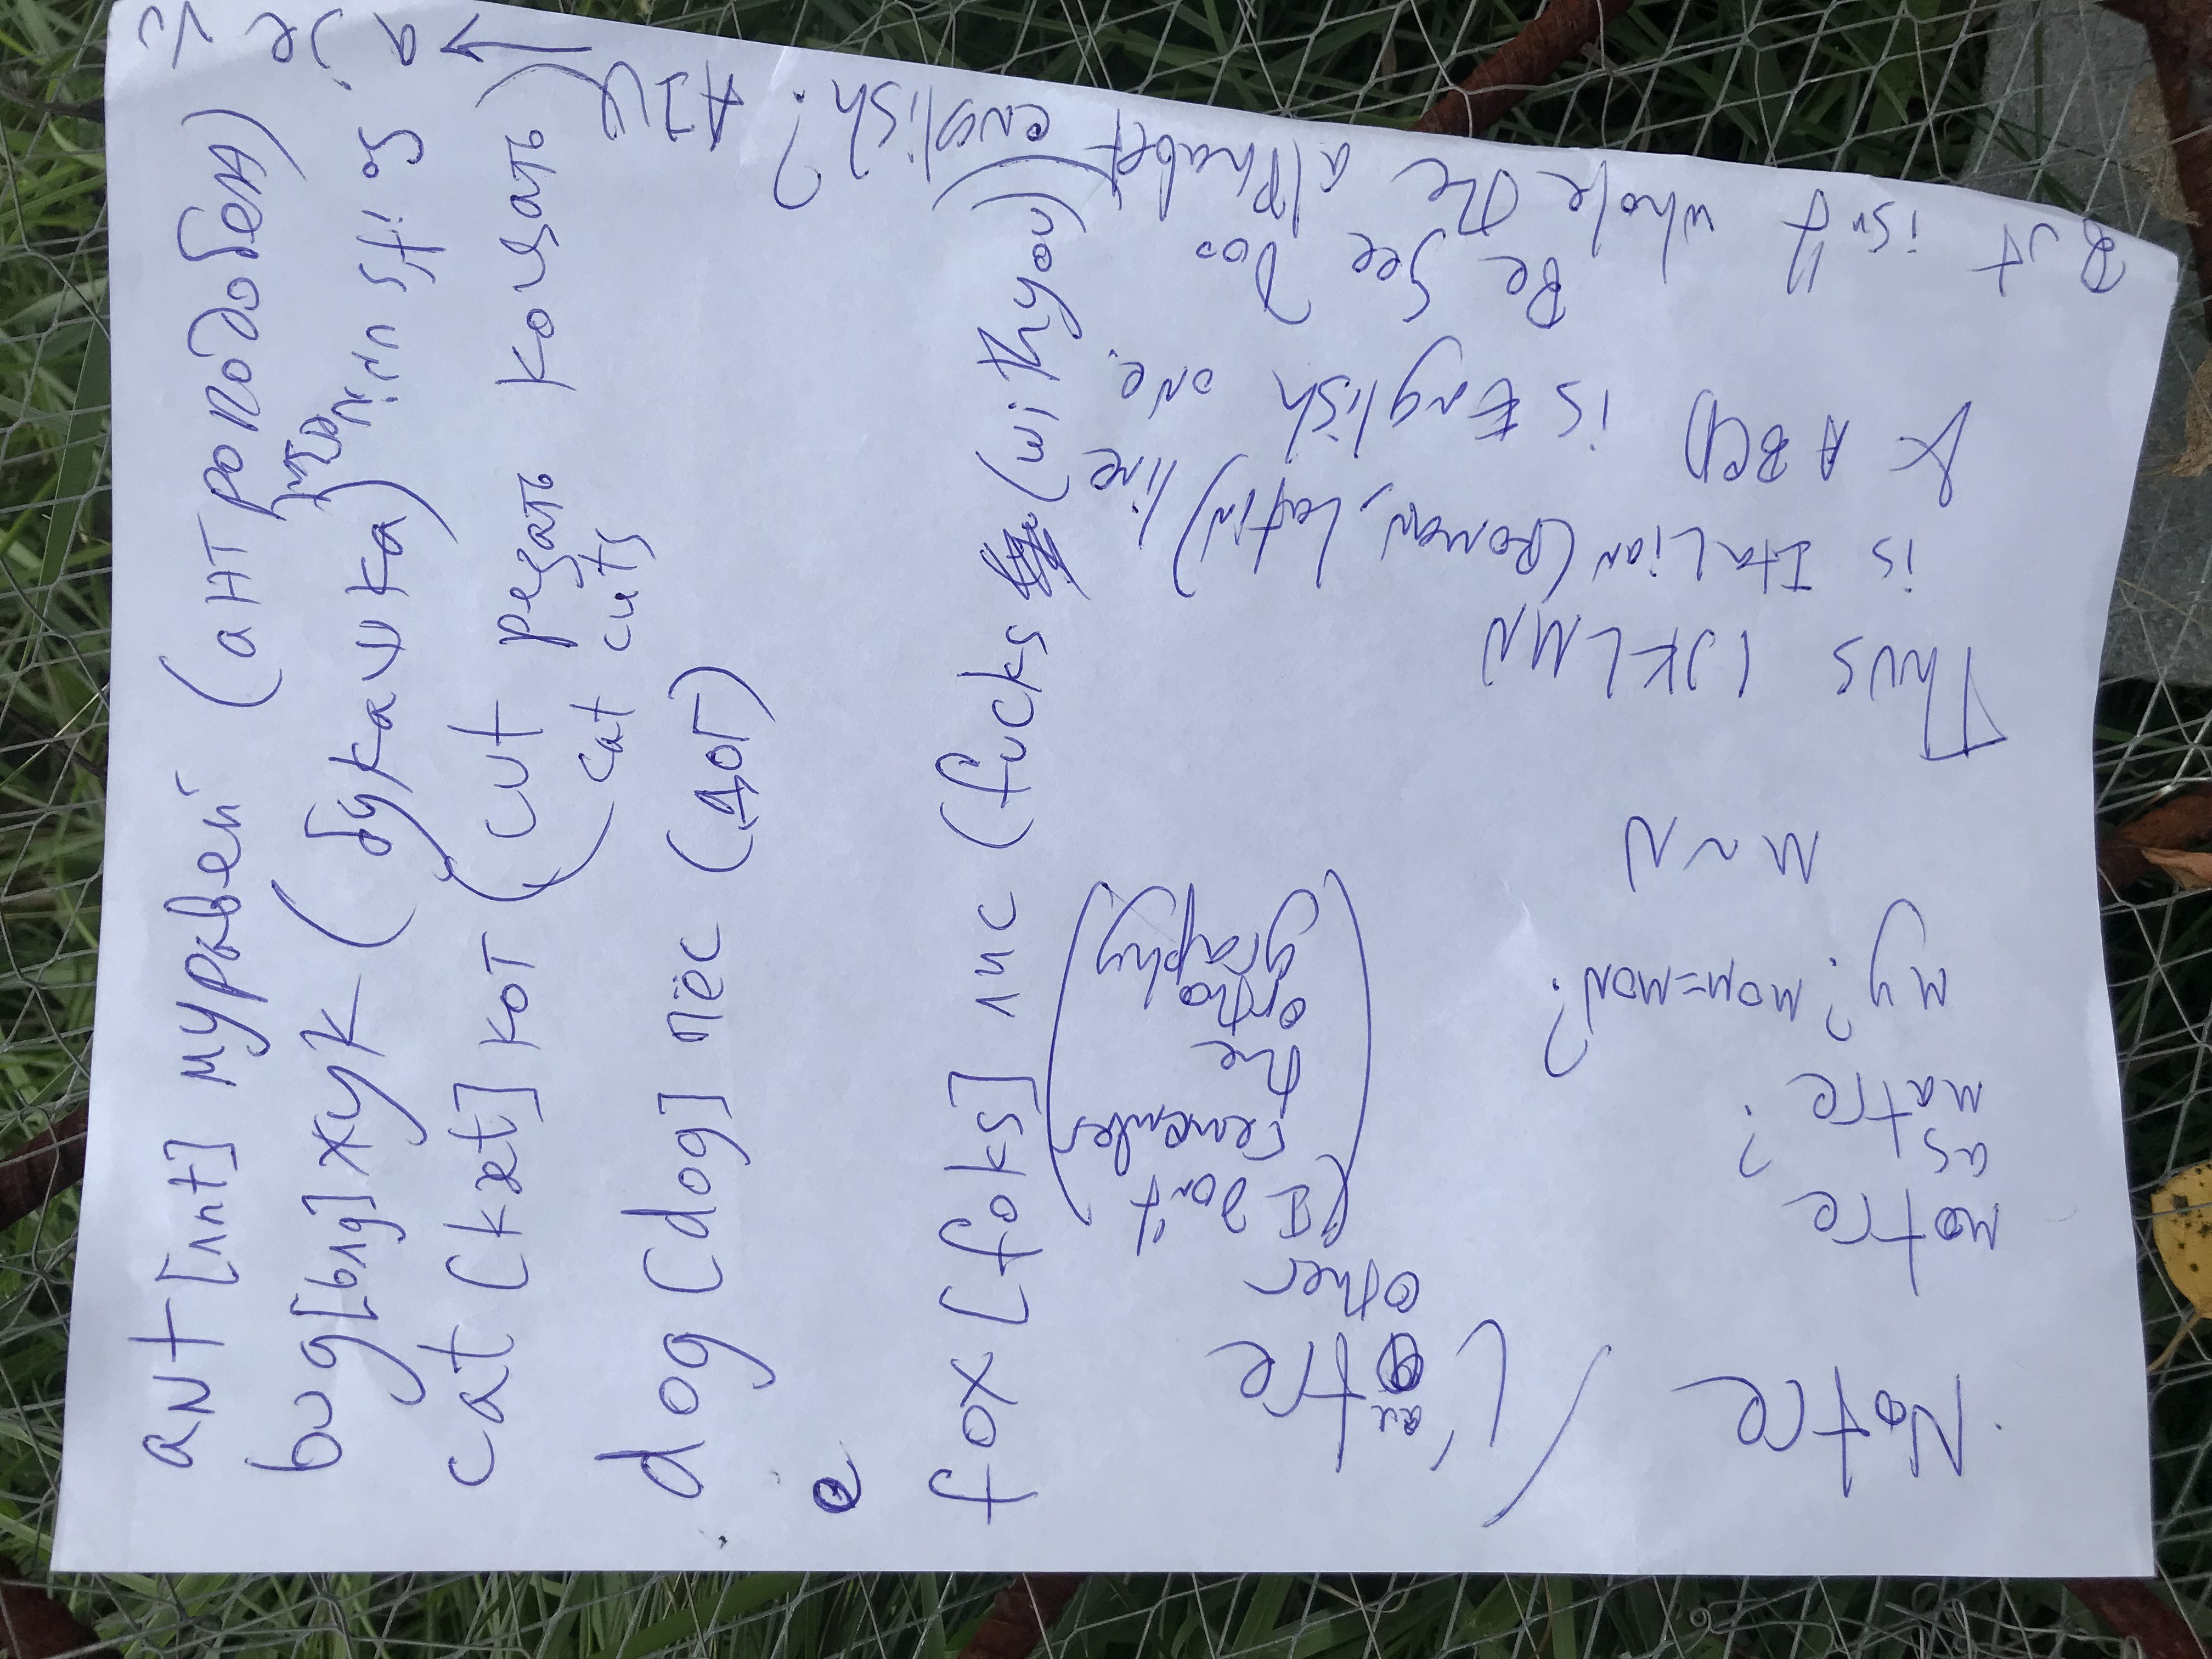 ant [ʌnt] муравей (антроподобен)
bug [bʌg] жук (букашка)
cat [kæt] кот (cut резать коцать
cat cuts
dog [dog] пёс (дог)
e
fox [foks] лис (fucks (withyou)
Notre / L'autre
other
(I don't
remember
the
ortho
graphy)
motre
as
matre?
my? mom=mon?
M ~ N
Thus IJKLMN
is ItaLian (Roman, Latin) line
& ABCD is English one.
Be See Doo
But is
whole the alphabet english? AIU → a je vu